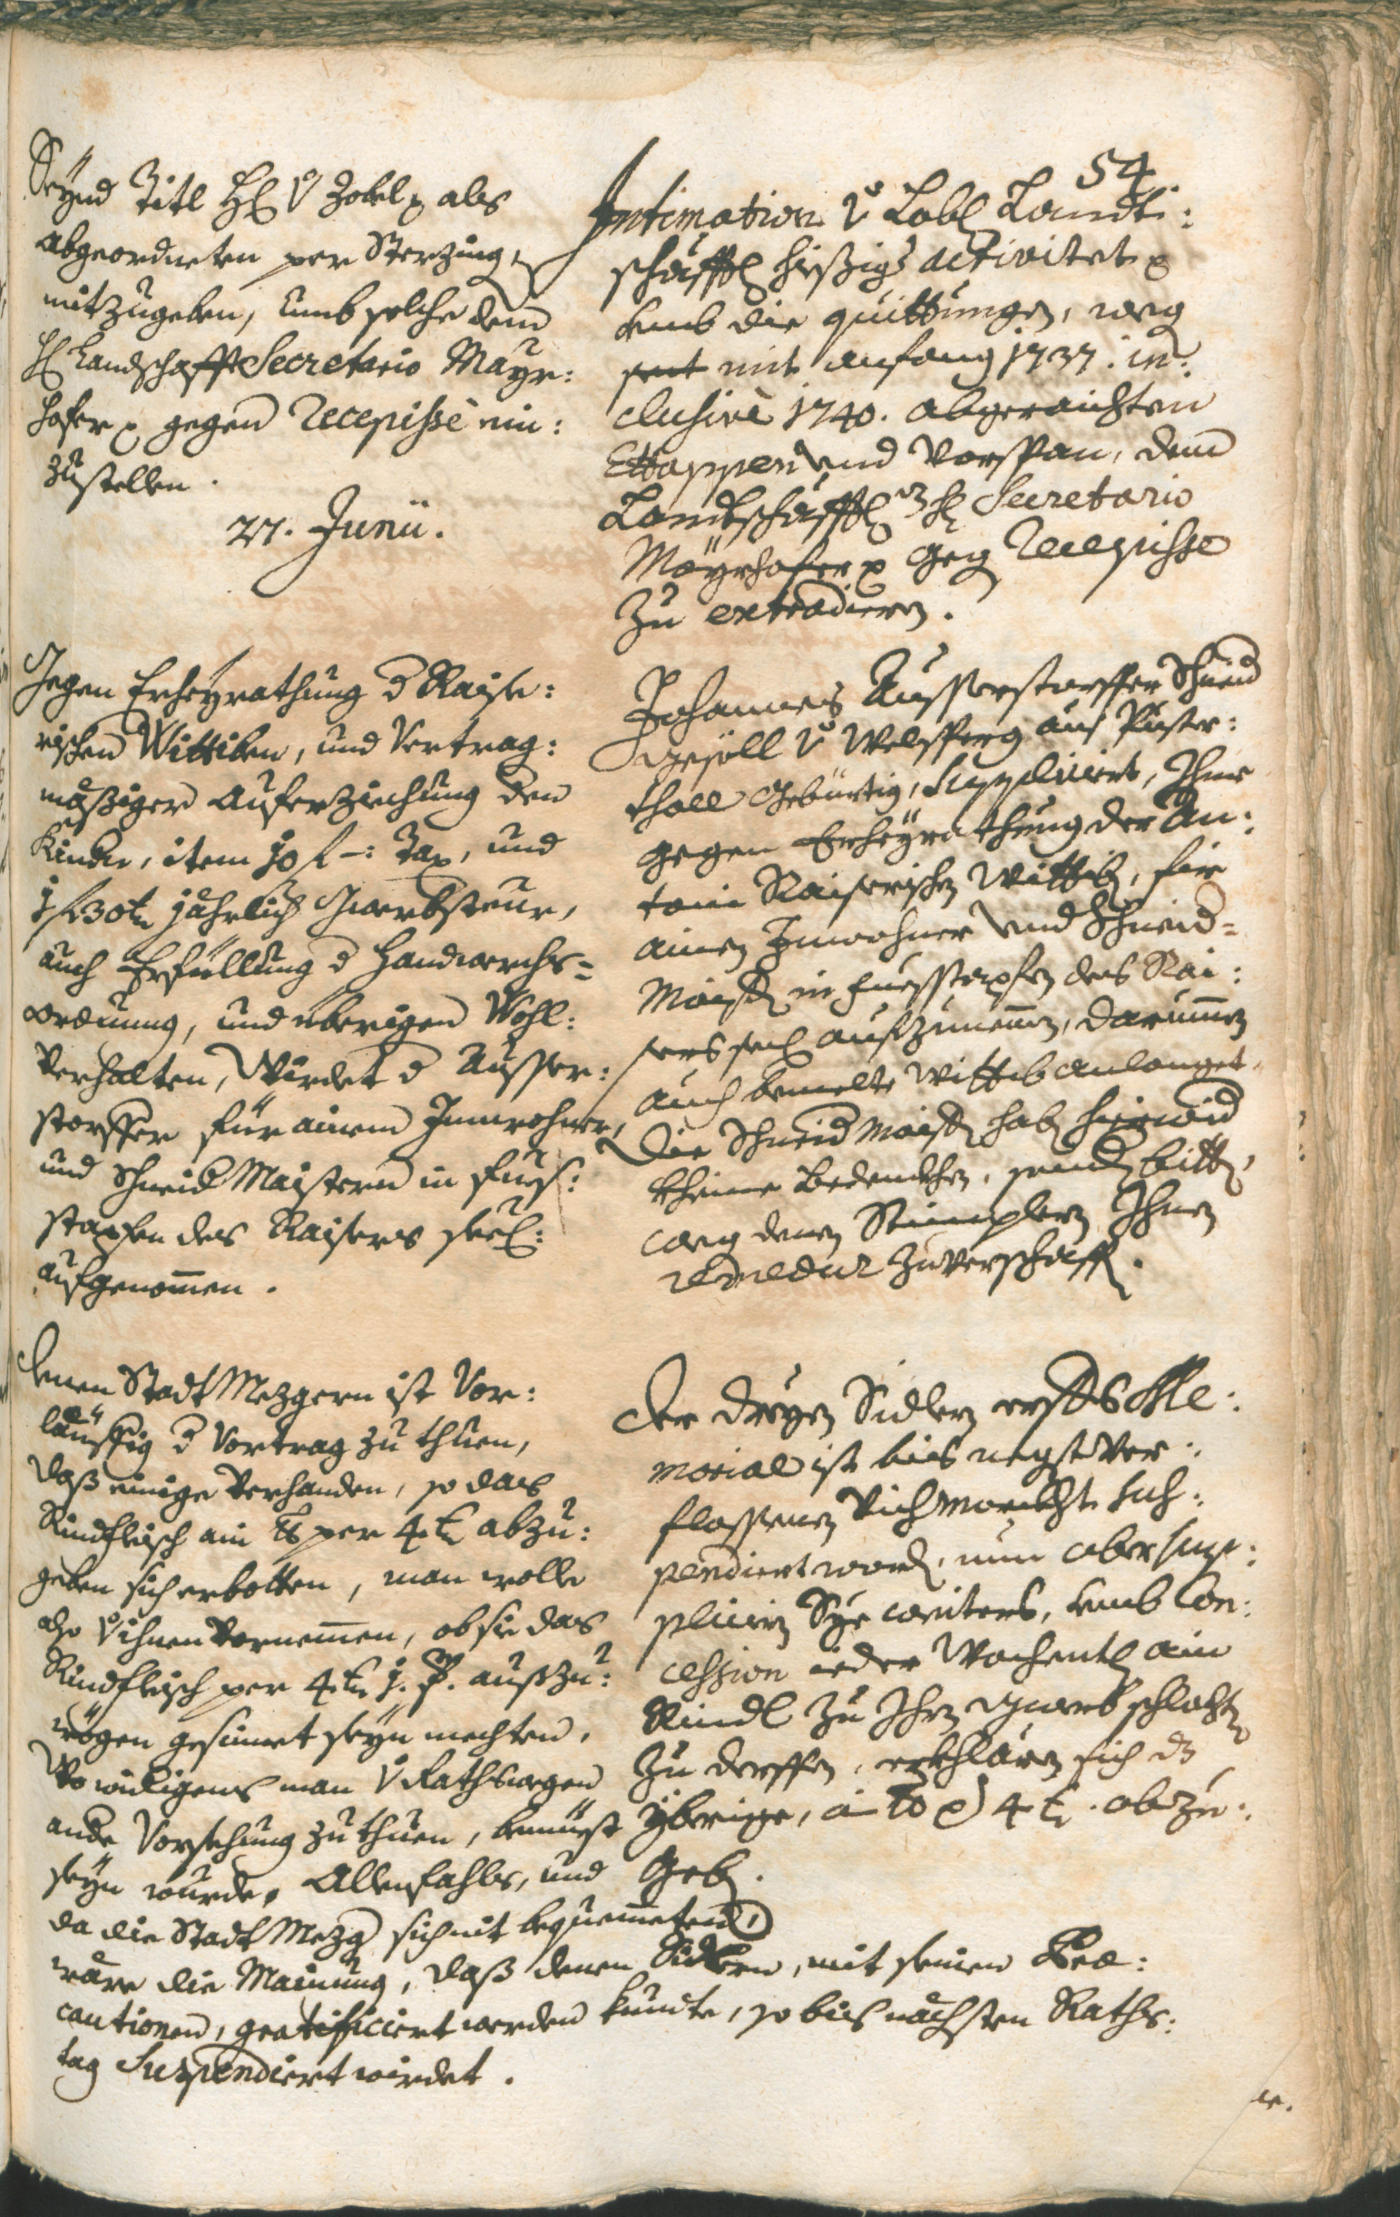 54
Seynd Titl H: v Zobel als
abgeordneten per Sterzing,
mitzugeben, umb solche dem
H: Landschafft Secretario Mayr:
hofer gegen Recepisse ein:
zustellen.
27. Junii.
Gegen Erheyrathung d Kaise:
rischen Wittiben, und Vertrag:
mäßiger Auferziehung der
Kinder, item 10 f –: Tax, und
1 f 30 kr jährlich Gwerbsteur,
auch Erfüllung d Handwerchs=
ordnung, und übrigen Wohl:
verhalten, Würdet d Ausser:
storffer für ainem Innwohner,
und Schneid Maistern in Fues:
stapfen des Kaisers seel:
aufgenommen.
denen Stadt Mezgern ist Vor:
läuffig d Vortrag zu thuen,
daß einige Verhanden, so das
Rindfleisch ain lb per 4 kr abzu:
geben sich erbotten, man wolle
also v ihnen Vernemmen, ob sie das
Rindfleisch per 4 kr auszu:
wögen gesinnet seyn mechten.
Wo widrigens man v Rathswegen
ande Vorsehung zu thuen, bemüest
seyn wurde. Allenfahls, und
da die Stadt Mezg sich nit bequemmeten,
wäre die Mainung, daß denen Sidlern, mit seinen Præ:
cautionen, gratificiert werden kundte, so bis nächsten Raths:
tag Suspendiert wirdet.
Intimation v Lobl Landt:
schäfftl hießigs activitet
umb die quittungen, weg
seit mit anfang 1737. in:
clusivè 1740. abgeraichten
Ettappen und Vorspan, dem
Landtschäfftl H: Secretario
Mayrhofer Geg Recepisse
Zu extradieren.
Johannes Ausserstorffer Schneid
gesöll v Welsperg aus Puster:
thall gebürtig, Suppliciert, Ihne
gegen Erheyrathung der An:
toni Kaiserischen Wittib, für
ainen Inwohner und Schneid=
Maistr in fuesstapfen des Kai:
sers seel aufzunemmen, darumen
auch bemelte Wittib anlanget.
Die Schneid Maistr hab hierwid
kheine Bedenkhen, sond bitt,
weg denen Stimplern Ihnen
remedur zuverschaff.
Der dreyen Sidlern erstes Me:
morial ist bis negst ver:
flossenen Vich Marckht sus:
pendiert word, nun aber sup:
plicieren Sye weiters, umb Con:
cession ieder Wochentl ain
Rindl zu Ihren gwerb schlacht
zu derffen, erkhlären sich dz
ybrige, à lb p 4 kr. abzu:
Geb.